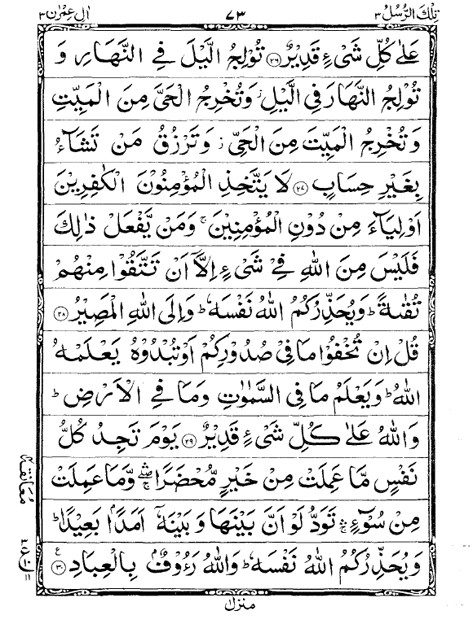 تِلْكَ الرُّسُلُ ٣ ٧٣ اٰلِ عِمْرٰن ٣
عَلٰى كُلِّ شَىْءٍ قَدِيْرٌ ﴿٢٦﴾ تُوْلِجُ الَّيْلَ فِى النَّهَارِ وَ
تُوْلِجُ النَّهَارَ فِى الَّيْلِ ۫ وَتُخْرِجُ الْحَىَّ مِنَ الْمَيِّتِ
وَتُخْرِجُ الْمَيِّتَ مِنَ الْحَىِّ ۫ وَتَرْزُقُ مَنْ تَشَآءُ
بِغَيْرِ حِسَابٍ ﴿٢٧﴾ لَا يَتَّخِذِ الْمُؤْمِنُوْنَ الْكٰفِرِيْنَ
اَوْلِيَآءَ مِنْ دُوْنِ الْمُؤْمِنِيْنَ ۚ وَمَنْ يَّفْعَلْ ذٰلِكَ
فَلَيْسَ مِنَ اللّٰهِ فِىْ شَىْءٍ اِلَّاۤ اَنْ تَتَّقُوْا مِنْهُمْ
تُقٰىةً ؕ وَيُحَذِّرُكُمُ اللّٰهُ نَفْسَهٗ ؕ وَاِلَى اللّٰهِ الْمَصِيْرُ ﴿٢٨﴾
قُلْ اِنْ تُخْفُوْا مَا فِىْ صُدُوْرِكُمْ اَوْ تُبْدُوْهُ يَعْلَمْهُ
اللّٰهُ ؕ وَيَعْلَمُ مَا فِى السَّمٰوٰتِ وَمَا فِى الْاَرْضِ ؕ
وَاللّٰهُ عَلٰى كُلِّ شَىْءٍ قَدِيْرٌ ﴿٢٩﴾ يَوْمَ تَجِدُ كُلُّ
نَفْسٍ مَّا عَمِلَتْ مِنْ خَيْرٍ مُّحْضَرًا ۛۖۚ وَّمَا عَمِلَتْ
مِنْ سُوْٓءٍ ۛۚ تَوَدُّ لَوْ اَنَّ بَيْنَهَا وَبَيْنَهٗۤ اَمَدًۢا بَعِيْدًا ؕ
وَيُحَذِّرُكُمُ اللّٰهُ نَفْسَهٗ ؕ وَاللّٰهُ رَءُوْفٌۢ بِالْعِبَادِ ﴿٣٠﴾
معانقة
منزل